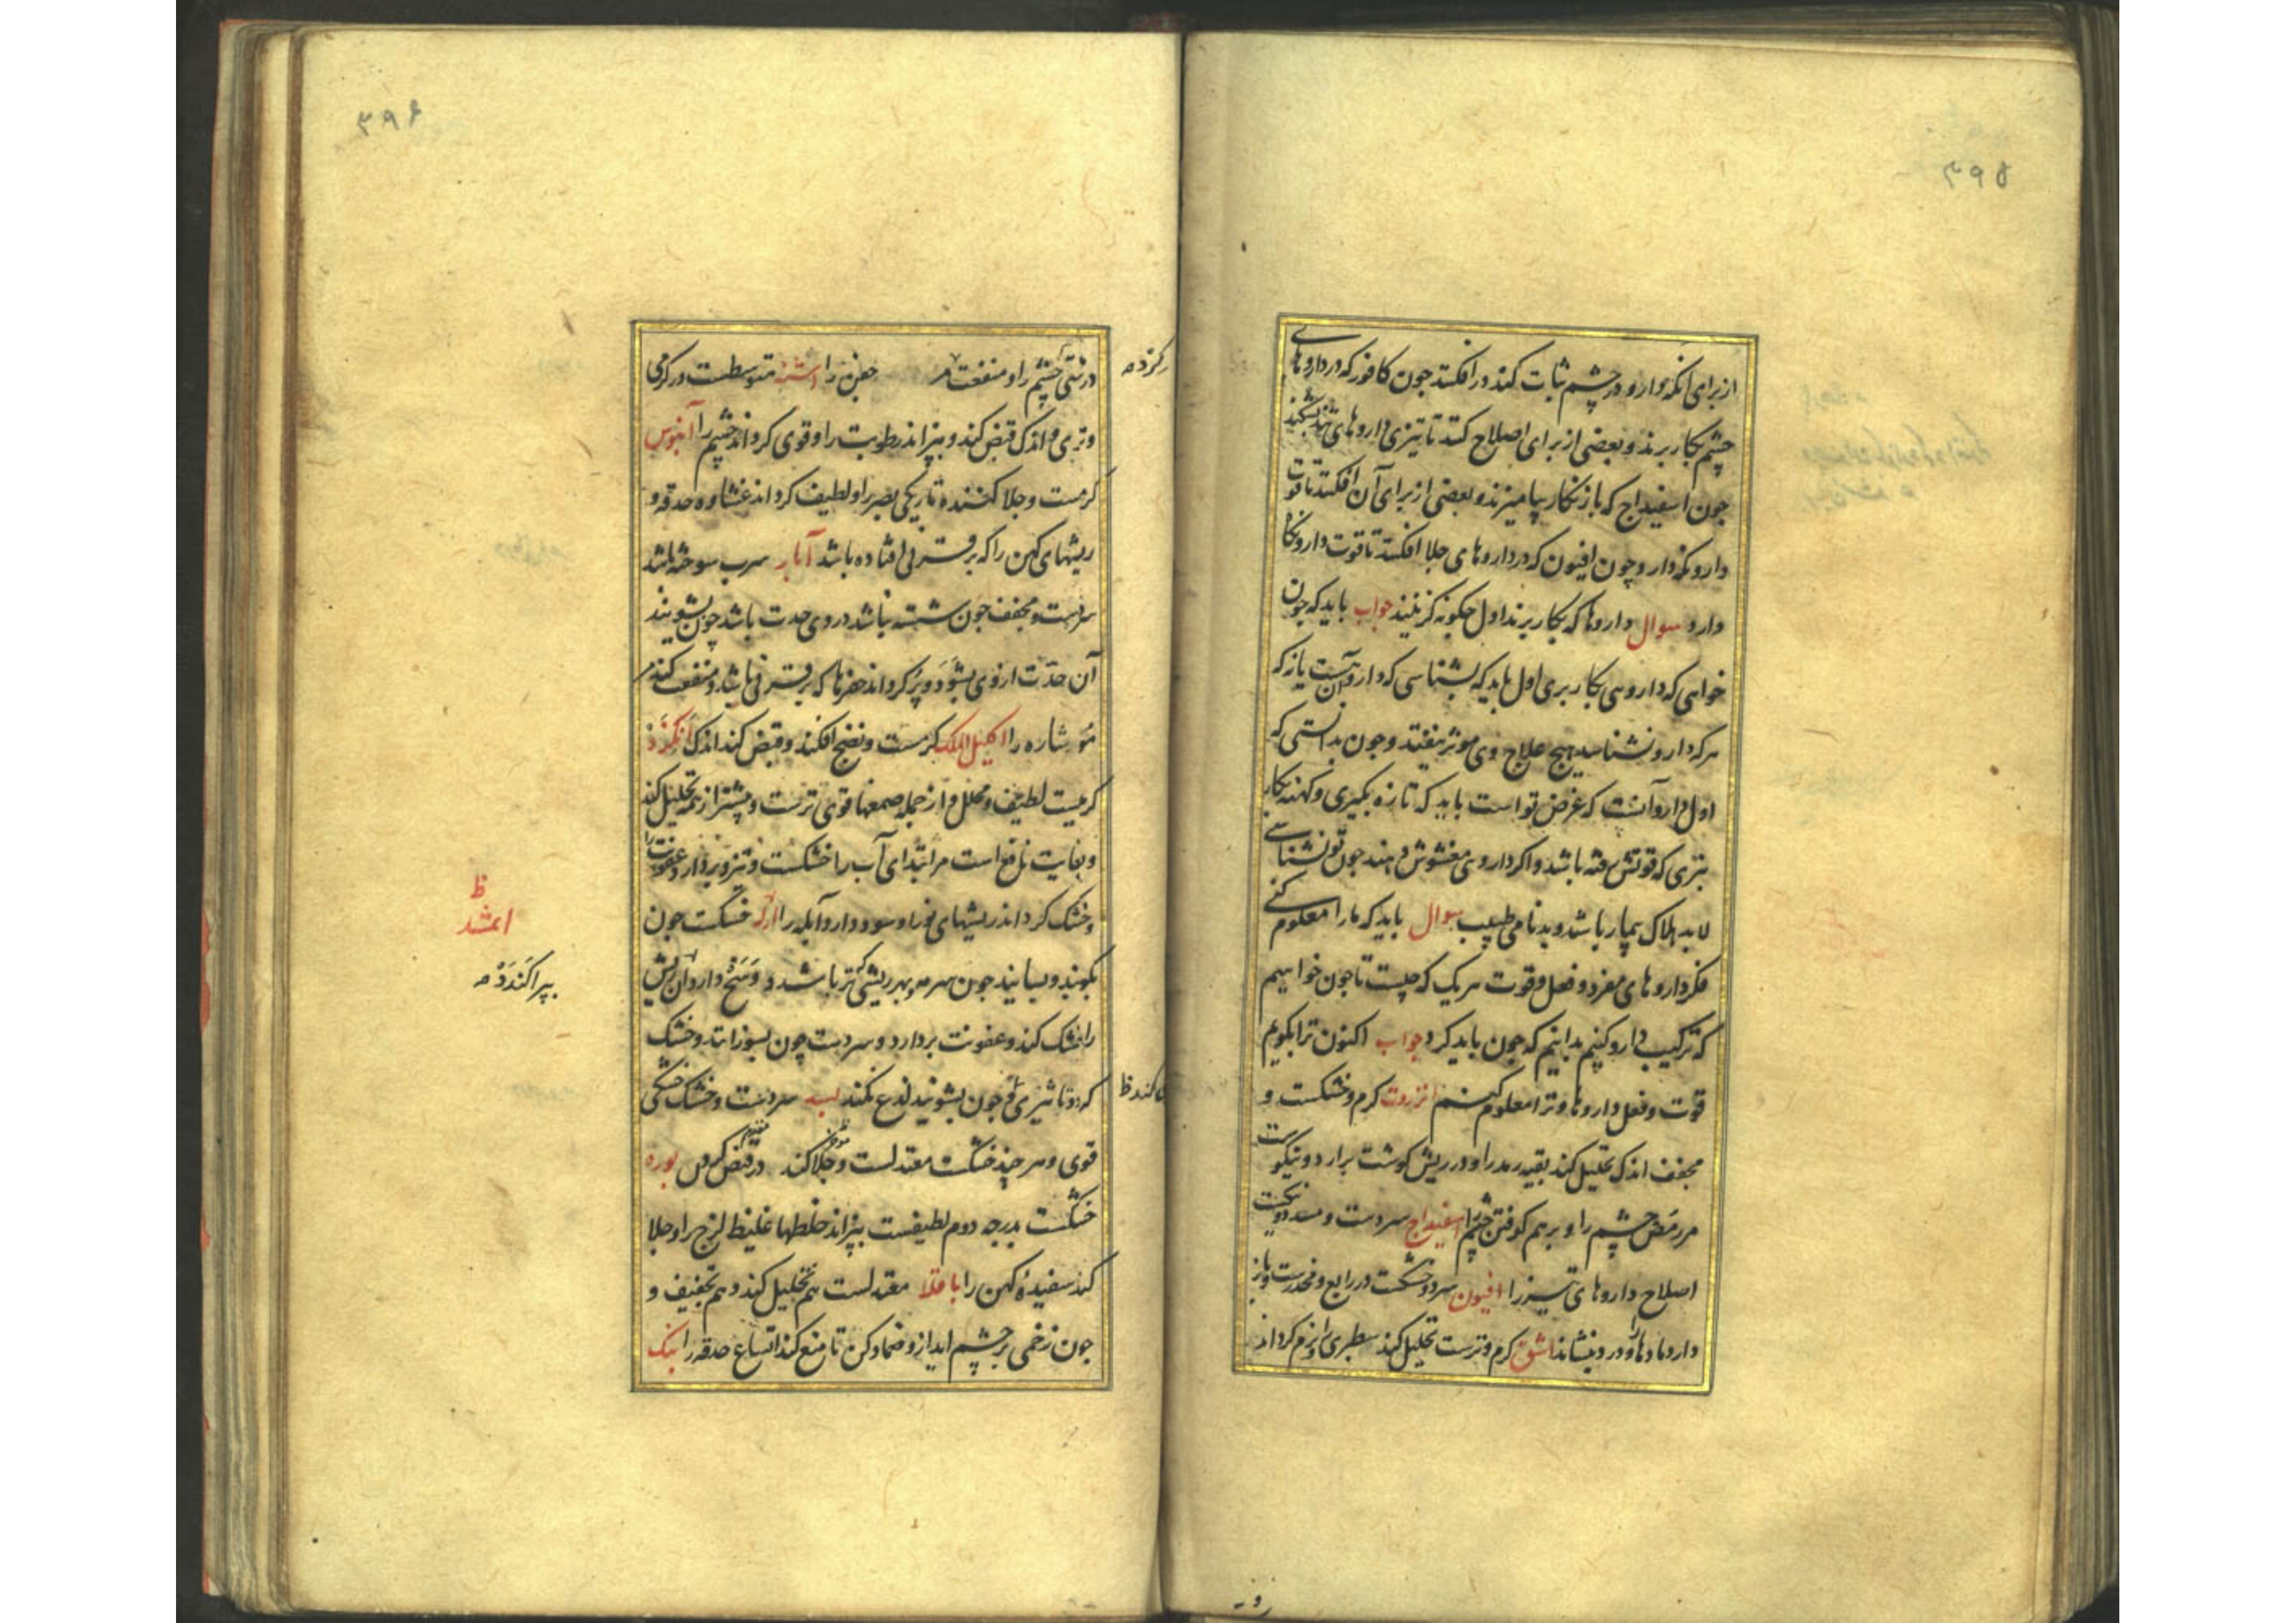 ۳۹۵
از برای آنکه دارو در چشم ثبات کند در افکنند جون کافور که در داروهای
چشم بکار برند و بعضی از برای اصلاح کنند تا تیزی داروهای تیز بشکند
جون اسفیداج که با زنکار بیامیزند و بعضی از برای آن افکنند تا قوت
دارو نکه دارد چون افیون که در داروهای جلا افکنند تا قوت دارو نکا
دارد سوال داروها که بکار برند اول جکونه کزینند جواب باید که جون
خواهی که داروهی بکار بری اول باید که بشناسی که دارو آنست یا نه که
هر که دارو نشناسد هیچ علاج وی موثر نیفتد و جون بدانستی که
اول دارو آنست که غرض تو است باید که تازه بکیری و کهنه بکار
نبری که قوتش رفته باشد و اکر داروی مغشوش دهند جون تو نشناسی
لابد هلاک بیمار باشد و بدنامی طبیب سوال باید که مارا معلوم کنی
فکر داروهای مفرد و فعل و قوت هر یک که چیست تا جون خواهیم
که ترکیب دارو کنیم بدانیم که جون باید کرد جواب اکنون ترا بکویم
قوت و فعل داروها و ترا معلوم کنم انزروت کرم و خشکست و
مجفف اندک تحلیل کند بقیه رمد را و در ریش کوشت برارد و نیکوست
مر رمص چشم را و بر هم کوفتن چشم را اسفیداج سردست و مسدد و نیکست
اصلاح داروهای تیز را افیون سرد و خشکست در رابع و مخدرست و باز
دارد مادها را و درد بنشاند اشق کرم و ترست تحلیل کند سطبری را و نرم کرداند
۳۹۶
درشتی چشم را و منفعت جفن را اشنه متوسطست در کرمی
و تری و اندک قبض کند و بپزاند رطوبت را و قوی کرداند چشم را آبنوس
کرمست و جلا کننده تاریکی بصر را و لطیف کرداند غشاوه حدقه و
ریشهای کهن را که بر قرنی افتاده باشد آبار سرب سوخته باشد
سردست و مجفف جون شسته نباشد در وی حدت باشد چون بشویند
آن حدت از وی بشود و پر کرداند حفرها که بر قرنی باشد و منفعت کند مر
مورشاره را اکلیل الملک کرمست و نضج افکند و قبض کند اندک انکزد
کرمست لطیف و محلل و از جمله صمغها قوی ترست و پیشتر از همه تحلیل کند
و بغایت نافع است مر ابتدای آب را خشکست و تیز و بردارد عفونت را
و خشک کرداند ریشهای تر را و سود دارد آبله را خشکست جون
بکوبند و بسایند جون سرمه بهر ریشی که تر باشد و وسخ دارد آن ریش
را خشک کند و عفونت بردارد و سردست چون بسوزانند و خشک
کردد تا تیزی جون بشویند لذع نکند بسد سردست و خشک خشکی
قوی و هر چند خشکست معتدلست و جلا کند در قبض کردن بوره
خشکست بدرجه دوم لطیفست بپزاند خلطهای غلیظ لزج را و جلا
کند سفیده کهن را باقلا معتدلست هم تحلیل کند و هم تجفیف و
جون زخمی بر چشم اید ازو ضماد کن تا منع کند اتساع حدقه را بنک
ظ
اثمد
بپراکندذ